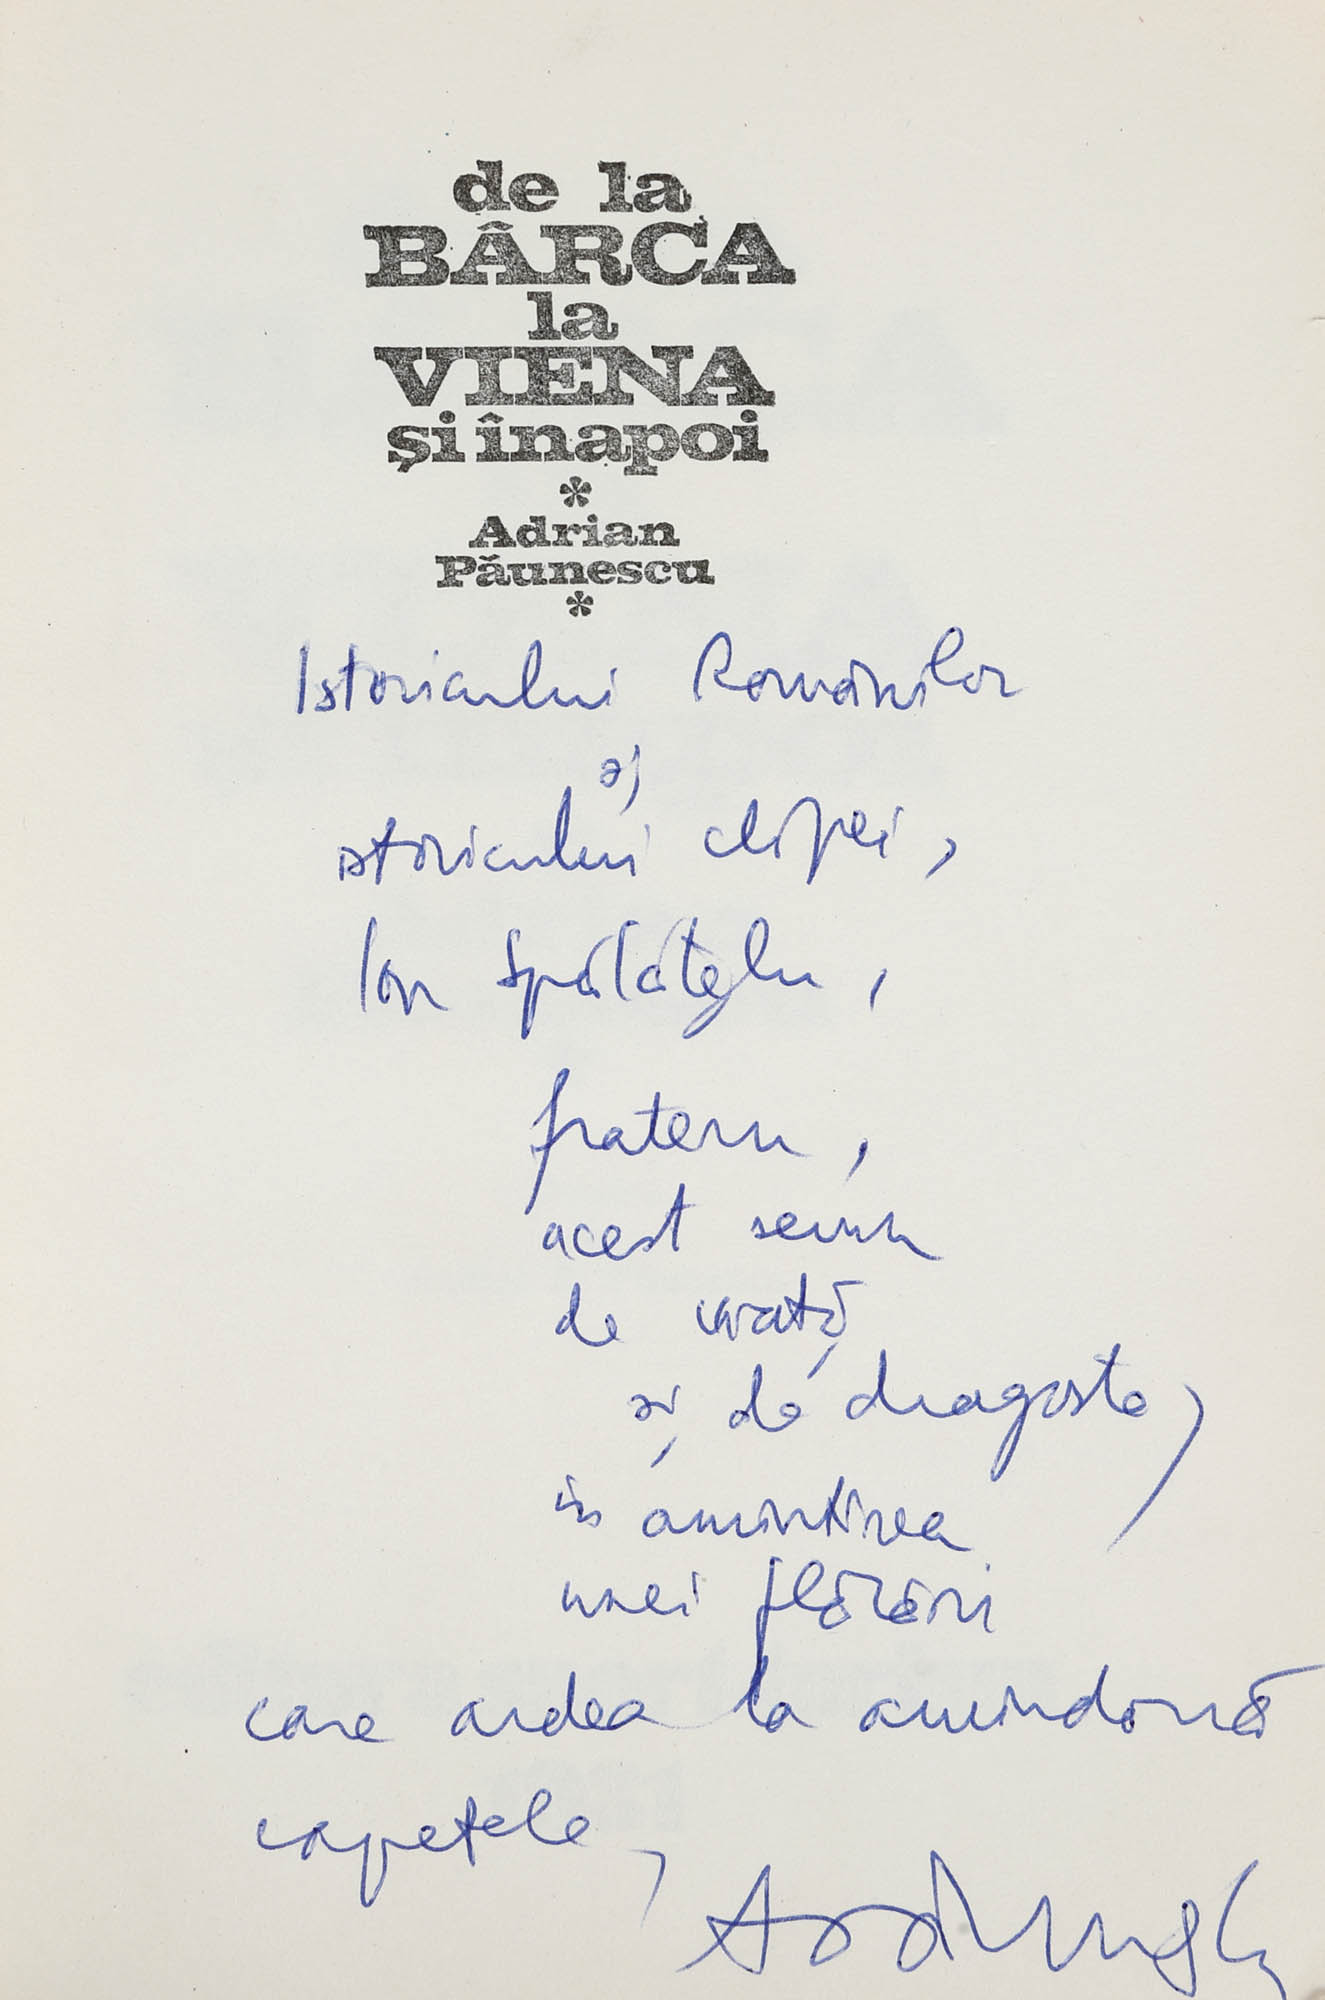 de la
BÂRCA
la
VIENA
și înapoi
*
Adrian
Păunescu
*
Istoricului Românilor
și
istoricului clipei,
Ion Spălățelu,
fratern,
acest semn
de viață
și de dragoste,
în amintirea
unei flăcări
care ardea la amândouă
capetele,